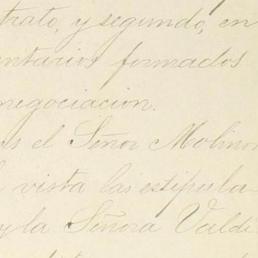 trato, y segundo, en
entarios formados
negociacion.
es el Señor Molino
vista las estipula
y la Señora Valdi